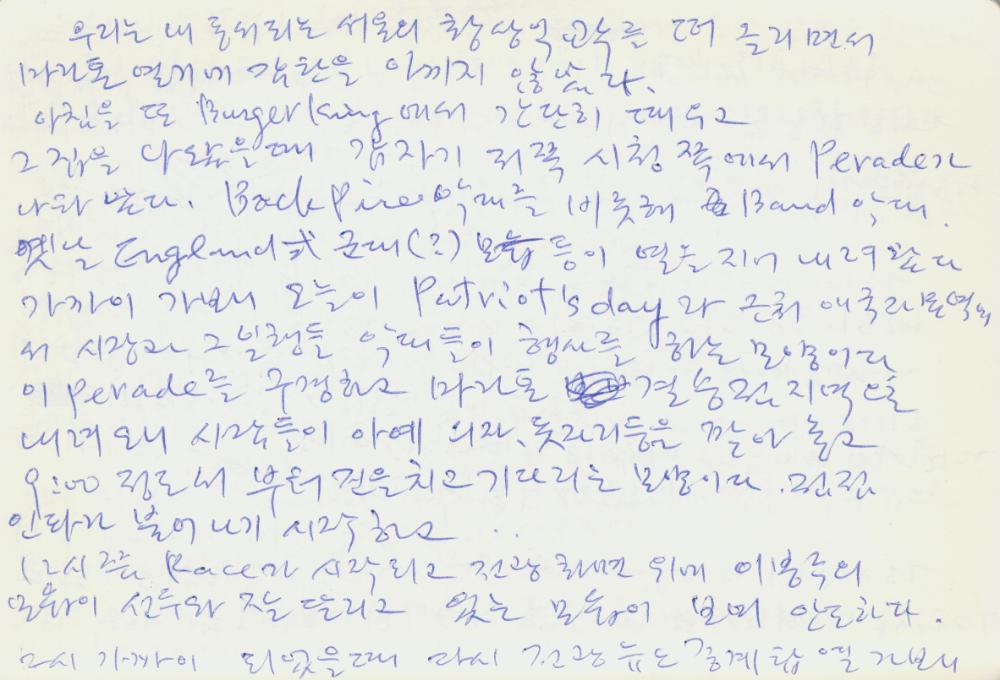 우리는 내 통치되는 서울의 황상익 교수를 떠 올리면서
마라톤 열기에 감탄을 아끼지 않았다.
아침을 또 Burger King에서 간단히 때우고
그 집을 나왔을때 갑자기 저쪽 시청 쪽에서 Perade가
나와 있다. Back Pire악대를 비롯해 Band 악대
옛날 England式 군대(?) 모습 등이 열을 지어 내려 왔다
가까이 가보니 오늘이 Patriot's day 라 근처 애국
서 시장과 그 일행들 악대들이 행사를 하는 모양이다
이 Perade를 구경하고 마라톤 결승점 지역으로
내려 오니 사람들이 아예 의자, 돗자리등을 깔아 놓고
9:00 정도서 부터 진을치고 기다리는 모양이다. 점점
인파가 불어 나기 시작하고 ..
12시 쯤 Race가 시작되고 전광 화면 위에 이봉주의
모습이 선두와 잘 달리고 있는 모습이 보여 안도하다.
2시 가까이 되었을때 다시 전광 뉴스 중계탑 옆 가보니